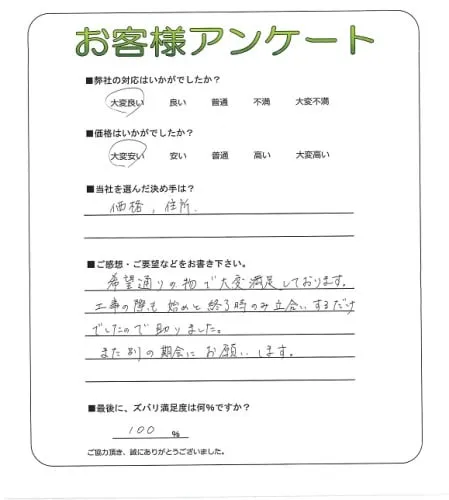 お客様アンケート
■弊社の対応はいかがでしたか?
大変良い 良い 普通 不満 大変不満
■価格はいかがでしたか?
大変安い 安い 普通 高い 大変高い
■当社を選んだ決め手は?
価格, 住所.
■ご感想・ご要望などをお書き下さい。
希望通りの物で大変満足しております。
工事の際も始めと終了時のみ立会いするだけ
でしたので助りました。
また別の期会にお願いします。
■最後に、ズバリ満足度は何%ですか?
100 %
ご協力頂き、誠にありがとうございました。